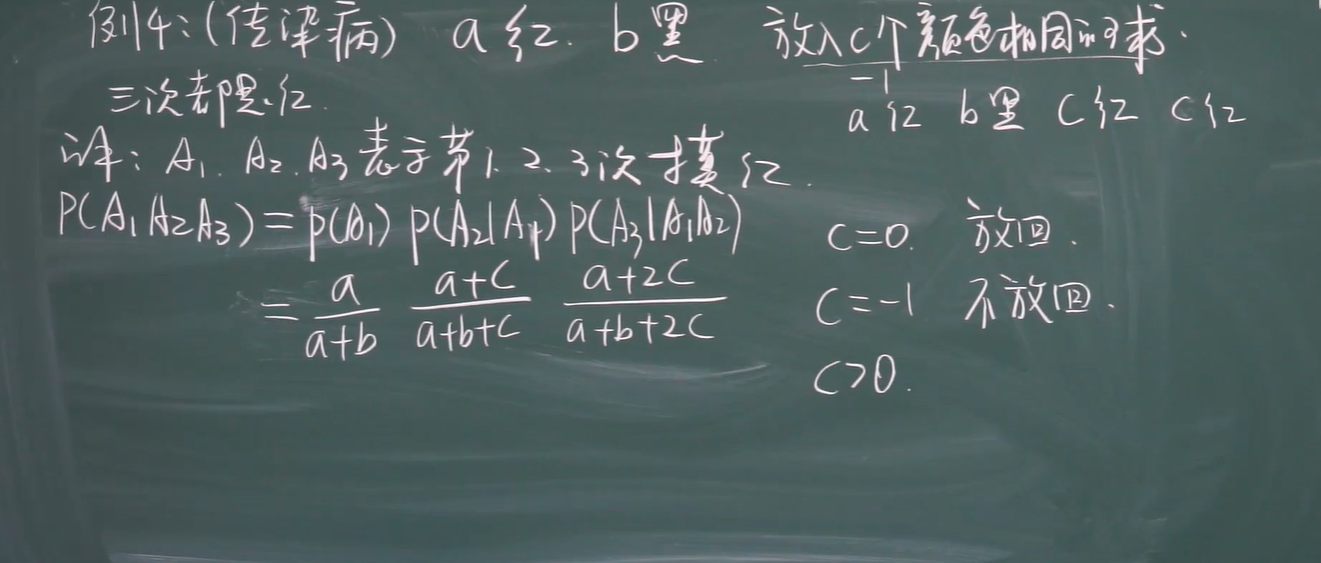 例4:(传染病) a红. b黑 放入c个颜色相同的球.
三次都是红.
-1
a红 b黑 c红 c红
解: A₁. A₂. A₃表示第1.2.3次摸红.
P(A₁A₂A₃)=P(A₁)P(A₂|A₁)P(A₃|A₁A₂)
= a/(a+b) (a+c)/(a+b+c) (a+2c)/(a+b+2c)
c=0. 放回.
c=-1 不放回.
c>0.